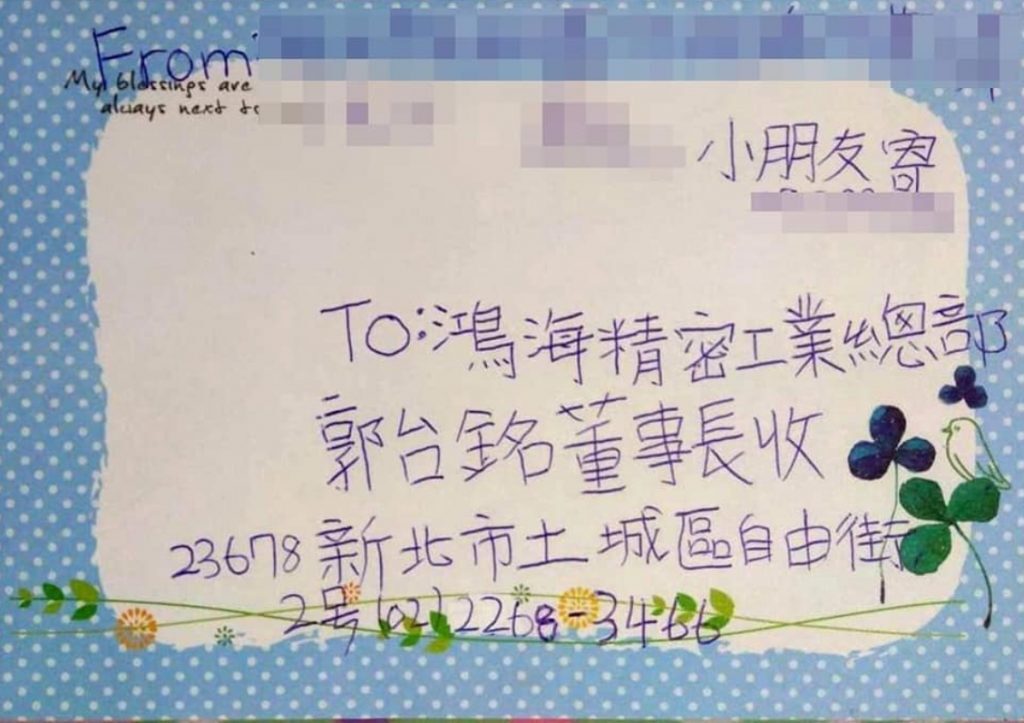 From:
My blessings are
always next to
小朋友寄
TO:鴻海精密工業總部
郭台銘董事長收
23678新北市土城區自由街
2号(02)2268-3466